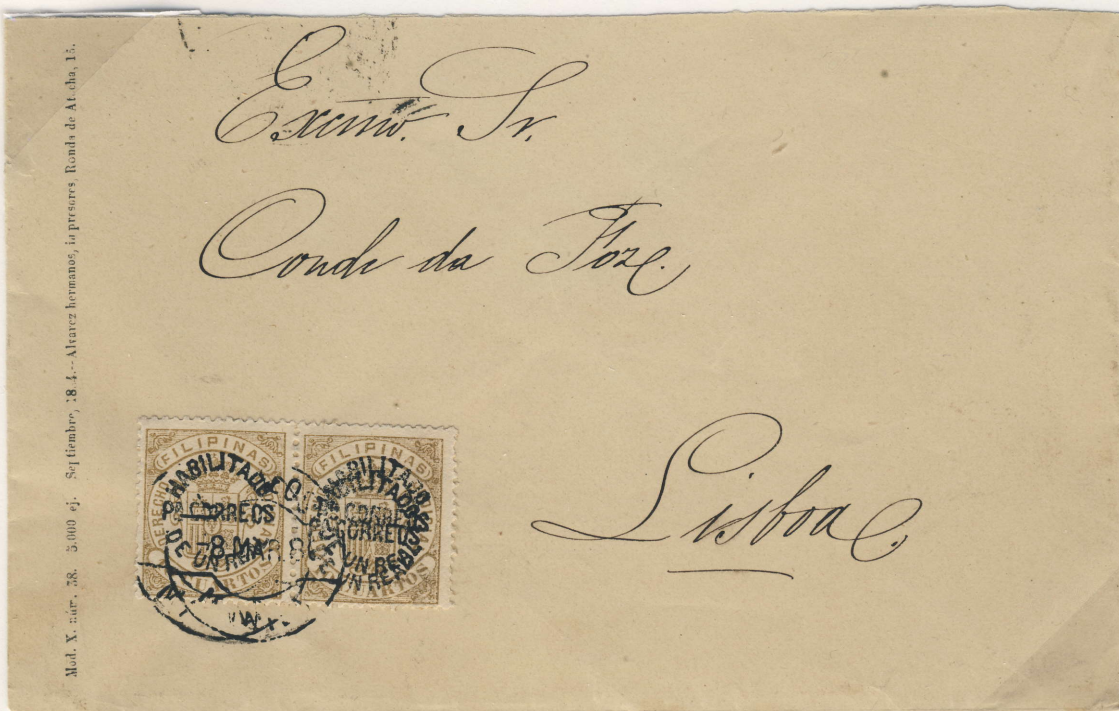 Mod. X. núm. 38. 5.000 ej. Septiembre, 18 4.--Alvarez hermanos, impresores, Ronda de Atocha, 15.
Excmo. Sr.
Conde da Foz
Lisboa
FILIPINAS
HABILITADO
PA CORREOS
DE UN REAL
CUARTOS
FILIPINAS
HABILITADO
CORREOS
UN REAL
CUARTOS